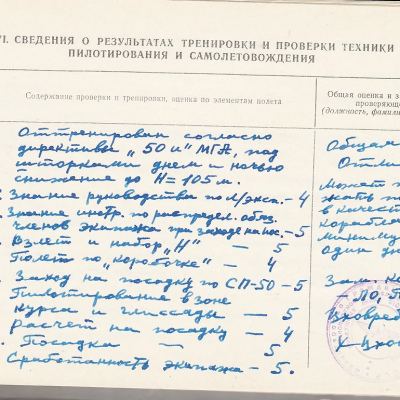 VI. СВЕДЕНИЯ О РЕЗУЛЬТАТАХ ТРЕНИРОВКИ И ПРОВЕРКИ ТЕХНИКИ
ПИЛОТИРОВАНИЯ И САМОЛЕТОВОЖДЕНИЯ
Содержание проверки и тренировки, оценка по элементам полета
Общая оценка и з
проверяющ
(должность, фамили
Оттренирован согласно
директивы „50 и" МГА, под
шторками днем и ночью
снижение до Н= 105 м.
Знание руководства по л/экс. - 4
Знание инстр. по распредел. обяз.
членов экипажа при заходе на пос. - 5
Взлет и набор „Н" - 5
Полет по „коробочке" - 4
Заход на посадку по СП-50 - 5
Пилотирование в зоне
курса и глиссады - 5
Расчет на посадку - 4
Посадка - 5
Сработанность экипажа - 5.
Общая
Отли
Может
в качест
корабл
миниму
один дн
Зам.